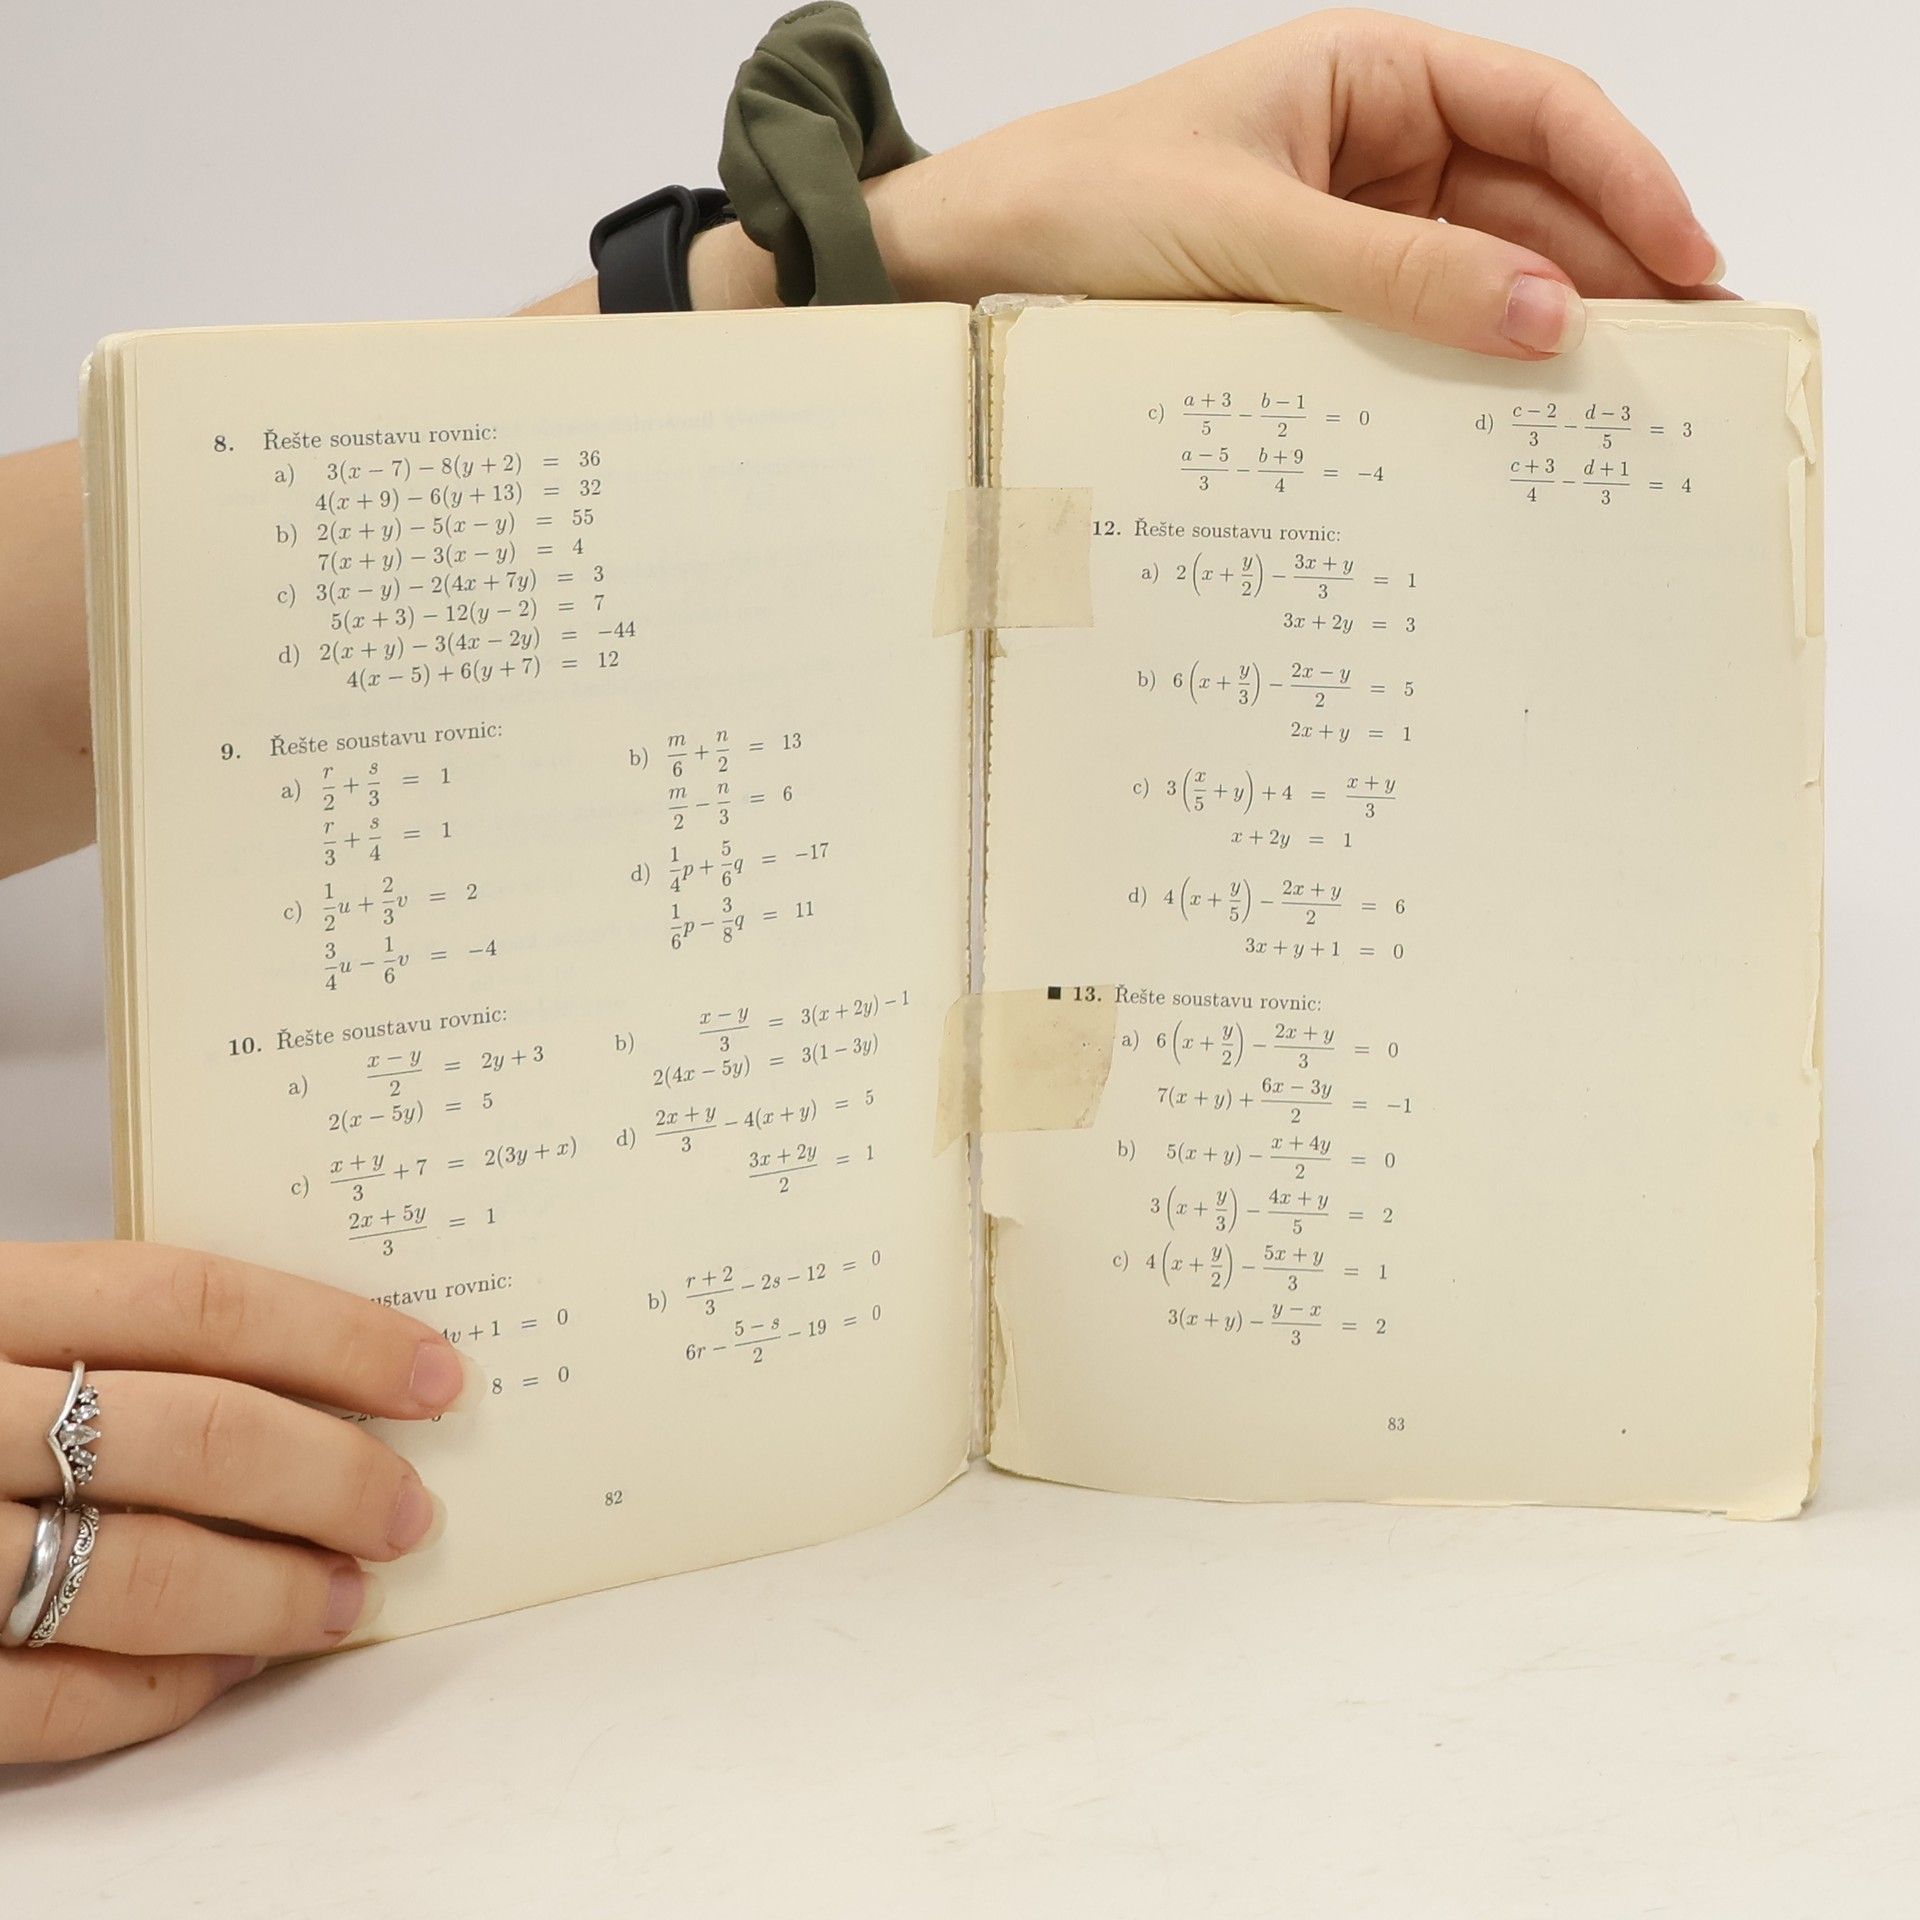 8. Řešte soustavu rovnic:
a) 3(x − 7) − 8(y + 2) = 36
4(x + 9) − 6(y + 13) = 32
b) 2(x + y) − 5(x − y) = 55
7(x + y) − 3(x − y) = 4
c) 3(x − y) − 2(4x + 7y) = 3
5(x + 3) − 12(y − 2) = 7
d) 2(x + y) − 3(4x − 2y) = −44
4(x − 5) + 6(y + 7) = 12
9. Řešte soustavu rovnic:
a) r/2 + s/3 = 1
r/3 + s/4 = 1
b) m/6 + n/2 = 13
m/2 − n/3 = 6
c) 1/2 u + 2/3 v = 2
3/4 u − 1/6 v = −4
d) 1/4 p + 5/6 q = −17
1/6 p − 3/8 q = 11
10. Řešte soustavu rovnic:
a) (x − y)/2 = 2y + 3
2(x − 5y) = 5
b) (x − y)/3 = 3(x + 2y) − 1
2(4x − 5y) = 3(1 − 3y)
c) (x + y)/3 + 7 = 2(3y + x)
(2x + 5y)/3 = 1
d) (2x + y)/3 − 4(x + y) = 5
(3x + 2y)/2 = 1
rovnic:
v + 1 = 0
8 = 0
b) (r + 2)/3 − 2s − 12 = 0
6r − (5 − s)/2 − 19 = 0
82
c) (a + 3)/5 − (b − 1)/2 = 0
(a − 5)/3 − (b + 9)/4 = −4
d) (c − 2)/3 − (d − 3)/5 = 3
(c + 3)/4 − (d + 1)/3 = 4
12. Řešte soustavu rovnic:
a) 2(x + y/2) − (3x + y)/3 = 1
3x + 2y = 3
b) 6(x + y/3) − (2x − y)/2 = 5
2x + y = 1
c) 3(x/5 + y) + 4 = (x + y)/3
x + 2y = 1
d) 4(x + y/5) − (2x + y)/2 = 6
3x + y + 1 = 0
■ 13. Řešte soustavu rovnic:
a) 6(x + y/2) − (2x + y)/3 = 0
7(x + y) + (6x − 3y)/2 = −1
b) 5(x + y) − (x + 4y)/2 = 0
3(x + y/3) − (4x + y)/5 = 2
c) 4(x + y/2) − (5x + y)/3 = 1
3(x + y) − (y − x)/3 = 2
83